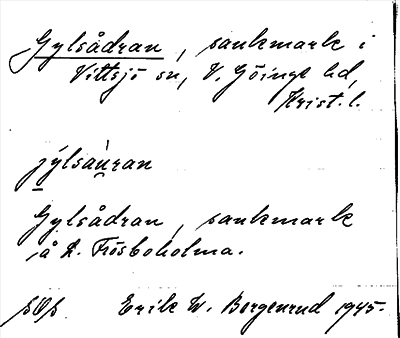 Gylsådran, sankmark i
Vittsjö sn, V. Göinge hd,
Krist. l.
jýlsau̯ran
Gylsådran, sankmark
å L. Frösboholma.
Erik W. Borgenrud 1945.